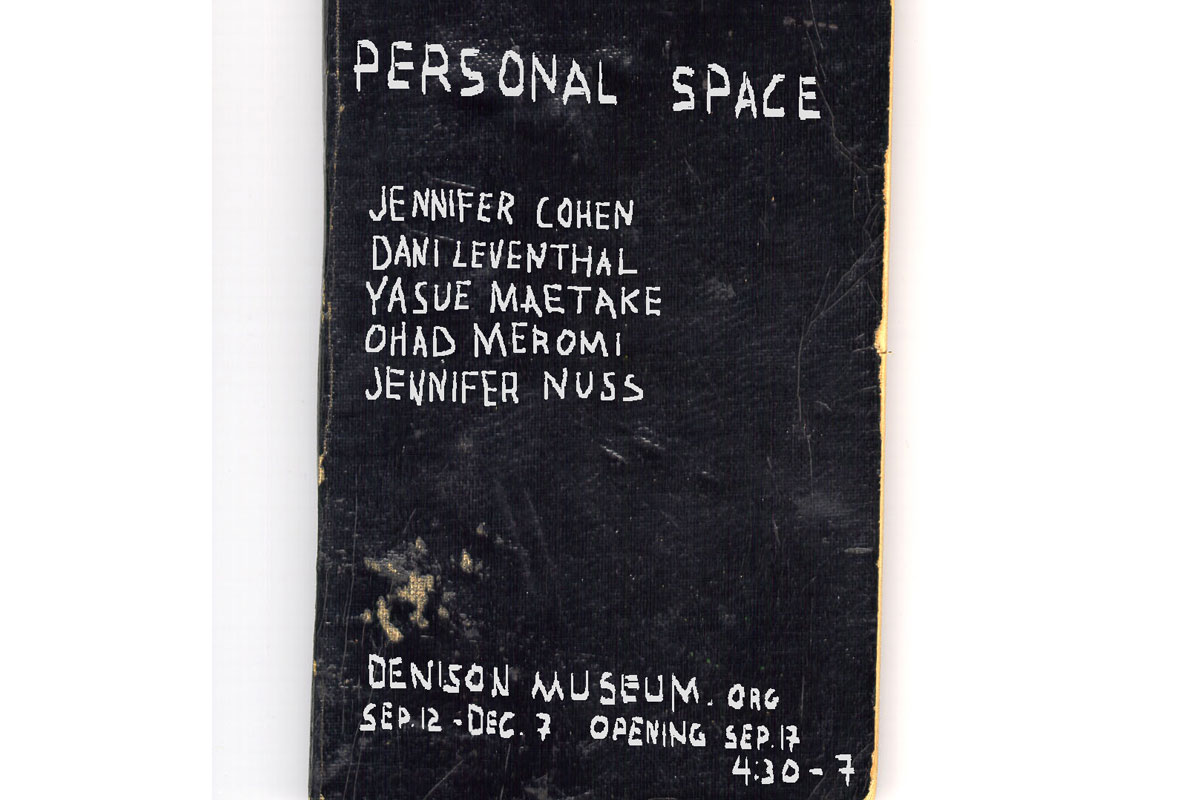 PERSONAL SPACE
JENNIFER COHEN
DANI LEVENTHAL
YASUE MAETAKE
OHAD MEROMI
JENNIFER NUSS
DENISON MUSEUM. ORG
SEP. 12 - DEC. 7 OPENING SEP. 17
4:30 - 7